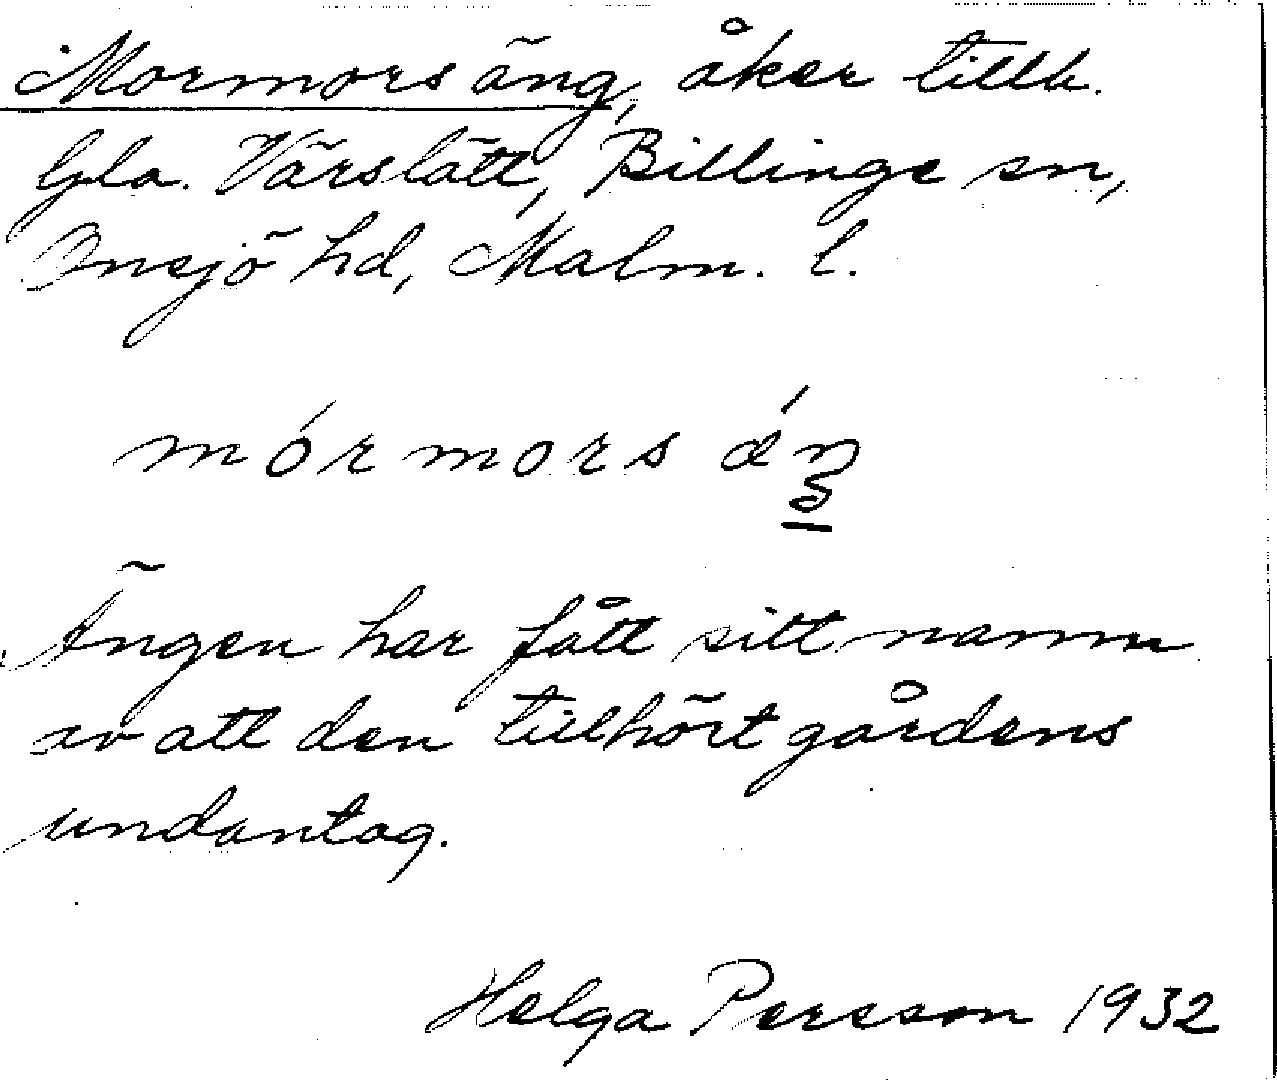 Mormorsäng, åker tillh.
Gla. Värslätt, Billinge sn,
Onsjö hd, Malm. l.
mórmors áŋ
Ängen har fått sitt namn
av att den tillhört gårdens
undantag.
Helga Persson 1932